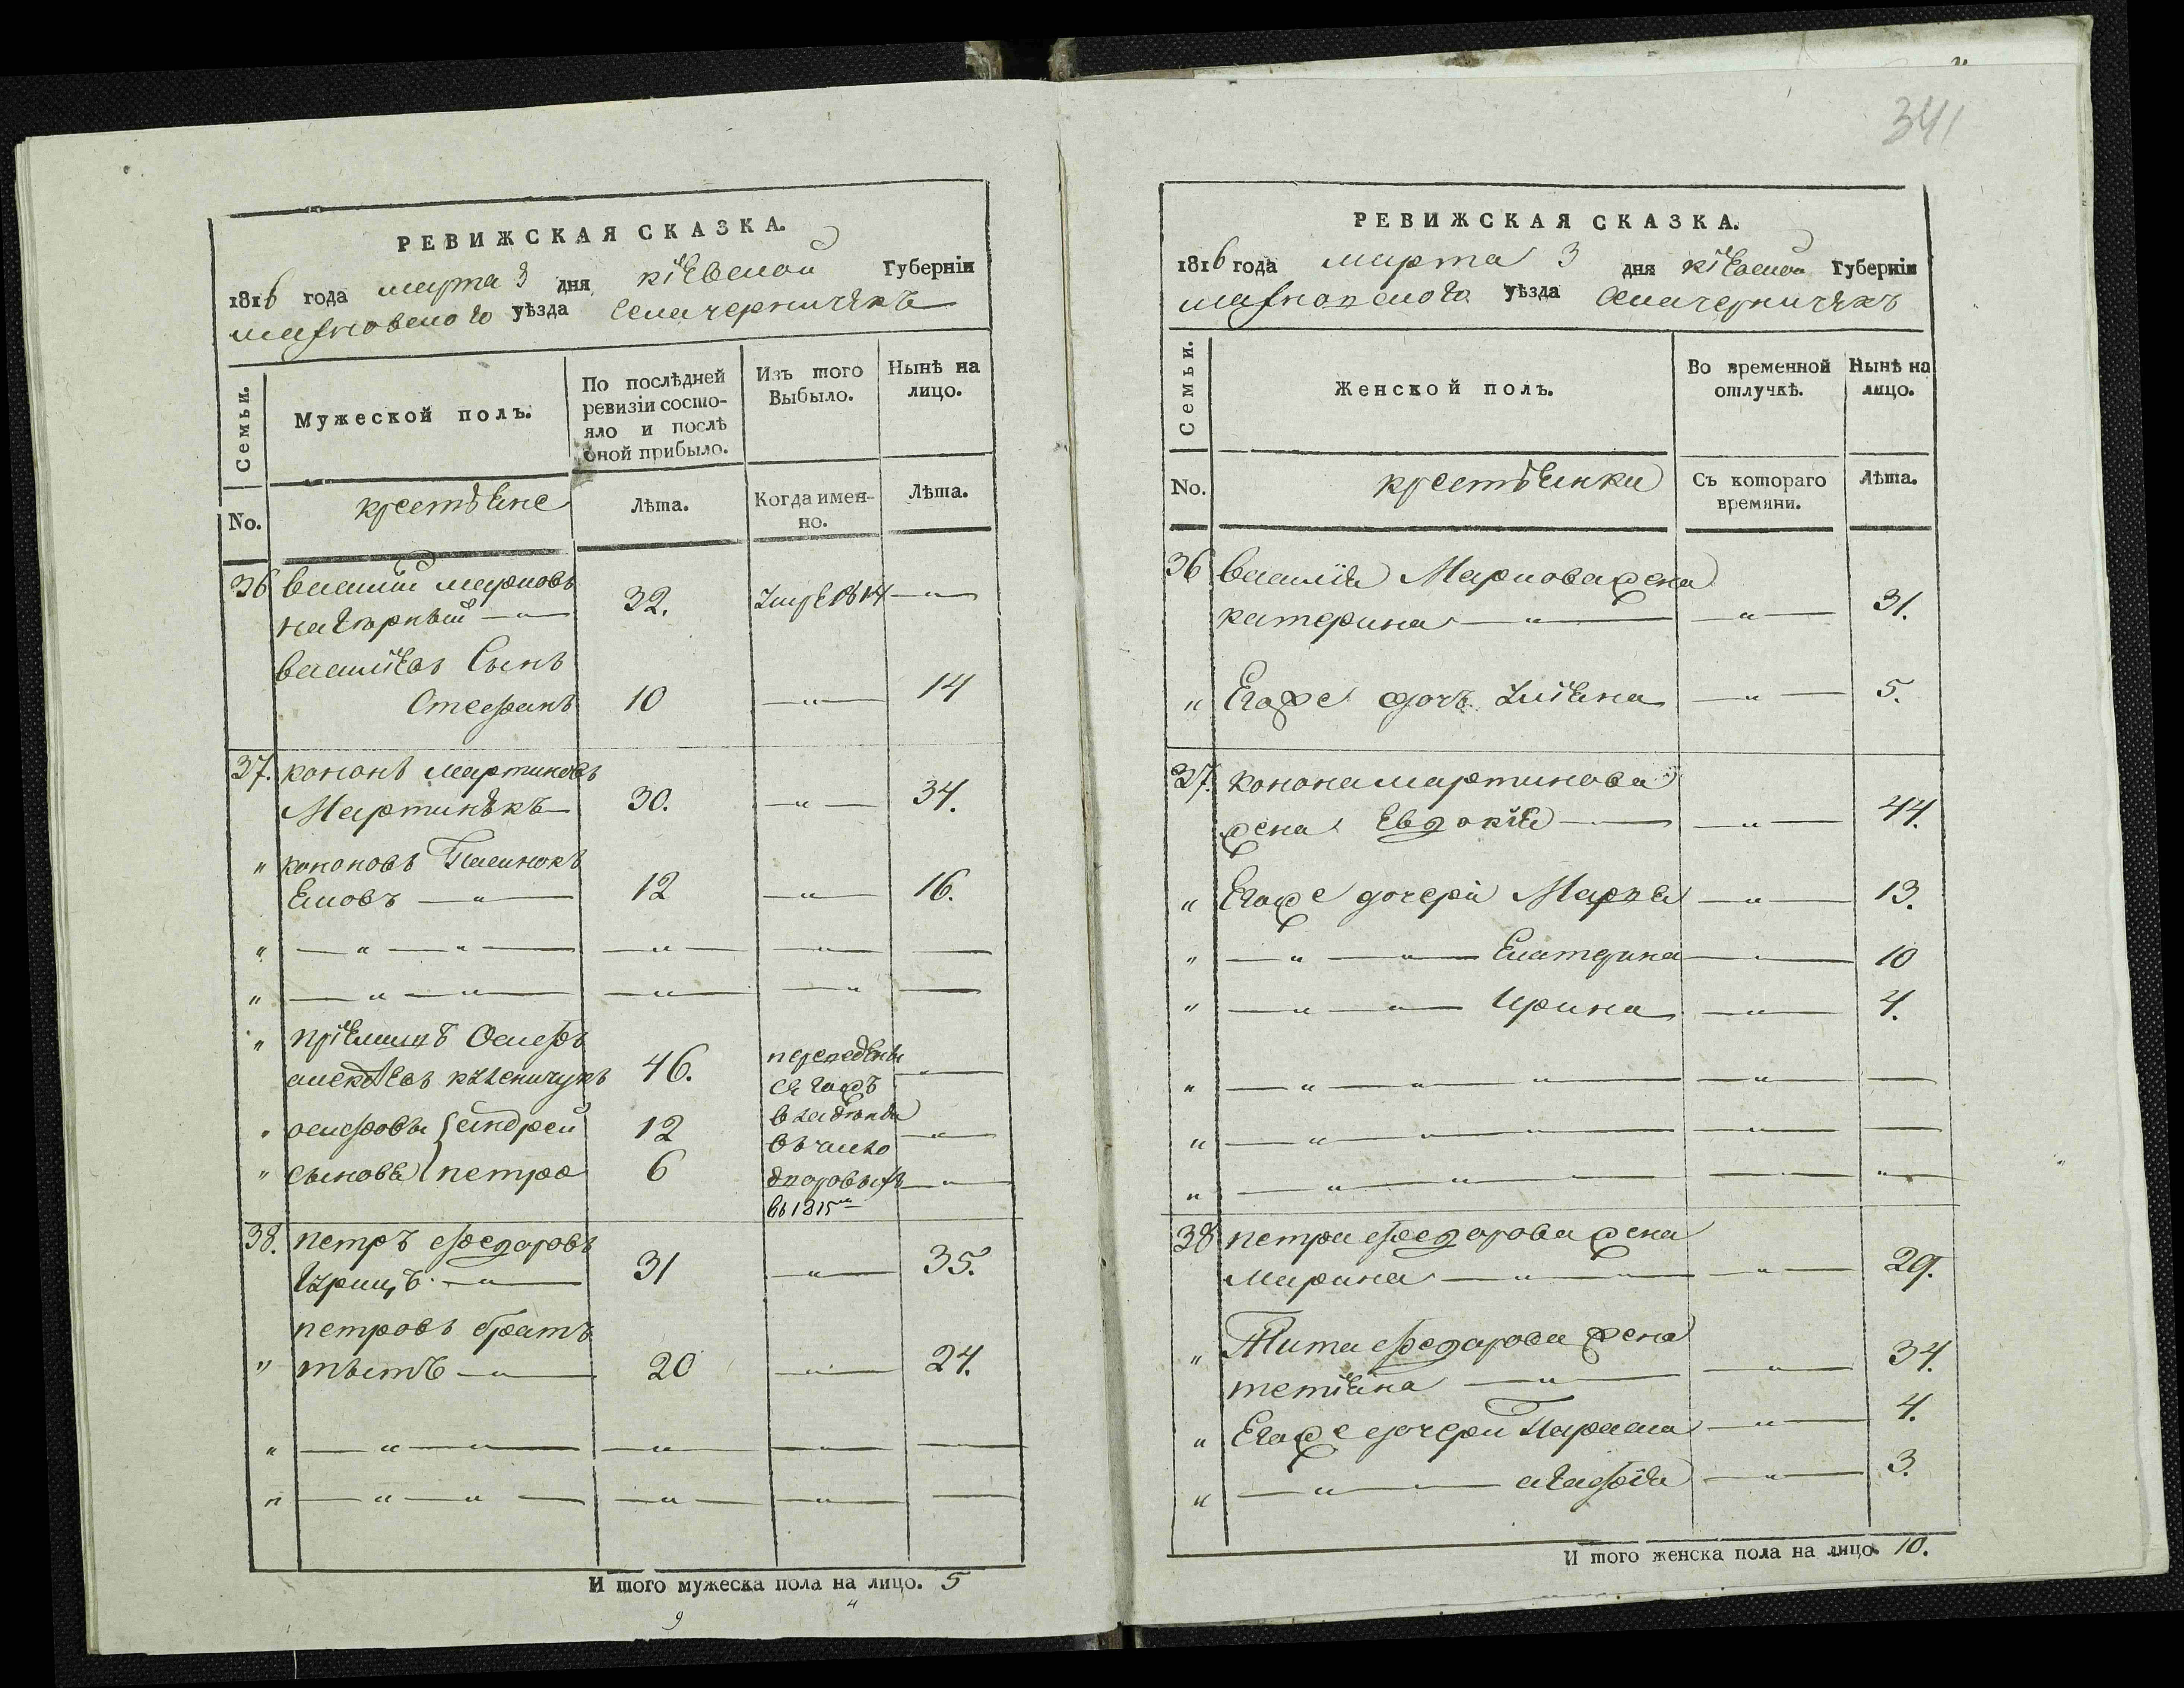 341
РЕВИЖСКАЯ СКАЗКА.
1816 года марта 3 дня кіевской Губерніи
махновского уѣзда села чернишѣкъ
Семьи.
Мужеской полъ.
По послѣдней ревизіи состояло и послѣ оной прибыло.
Изъ того Выбыло.
Нынѣ на лицо.
No.
крестьяне
Лѣта.
Когда именно.
Лѣта.
36 василій марковъ
нагорный — 32. умре 1814 —
василіевъ Сынъ
Стефанъ 10 — 14
37. кононъ мартиновъ
Мартинѣкъ 30. — 34.
" кононовъ Пасинокъ
Яковъ — 12 — 16.
" пріемишъ Осифъ
алексѣевъ 46. переведены
сягожъ
" осифовы андрей 12 въ число
" сынове петро 6 дворовыхъ
въ 1815
38. петръ федоровъ
31 — 35.
петровъ братъ
" тытъ — 20 — 24.
И того мужеска пола на лицо. 5
РЕВИЖСКАЯ СКАЗКА.
1816 года марта 3 дня кіевской Губерніи
махновского уѣзда села чернишѣкъ
Семьи.
Женской полъ.
Во временной отлучкѣ.
Нынѣ на лицо.
No.
крестьянки
Съ котораго времяни.
Лѣта.
36 василія Маркова жена
катерина — 31.
" Егоже дочъ уліяна — 5.
37. конона мартинова
жена Евдокія — 44.
" Егоже дочери Марья — 13.
" — Екатерина — 10
" — Ирина — 4.
38 петра федорова жена
марина — 29.
" Тита федорова жена
тетіяна — 34.
" Егоже дочери Параска — 4.
" — агафія — 3.
И того женска пола на лицо. 10.